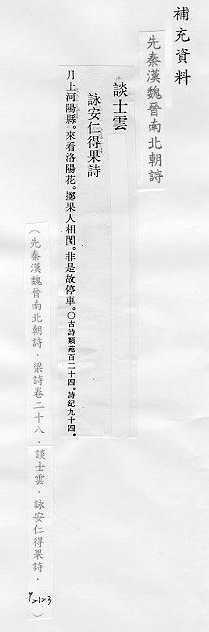 補充資料
先秦漢魏晉南北朝詩
談士雲
詠安仁得果詩
月上河陽縣。來看洛陽花。擲果人相閱。非是故停車。○古詩類苑百二十四。詩紀九十四。
(先秦漢魏晉南北朝詩．梁詩卷二十八．談士雲．詠安仁得果詩．P.2123)